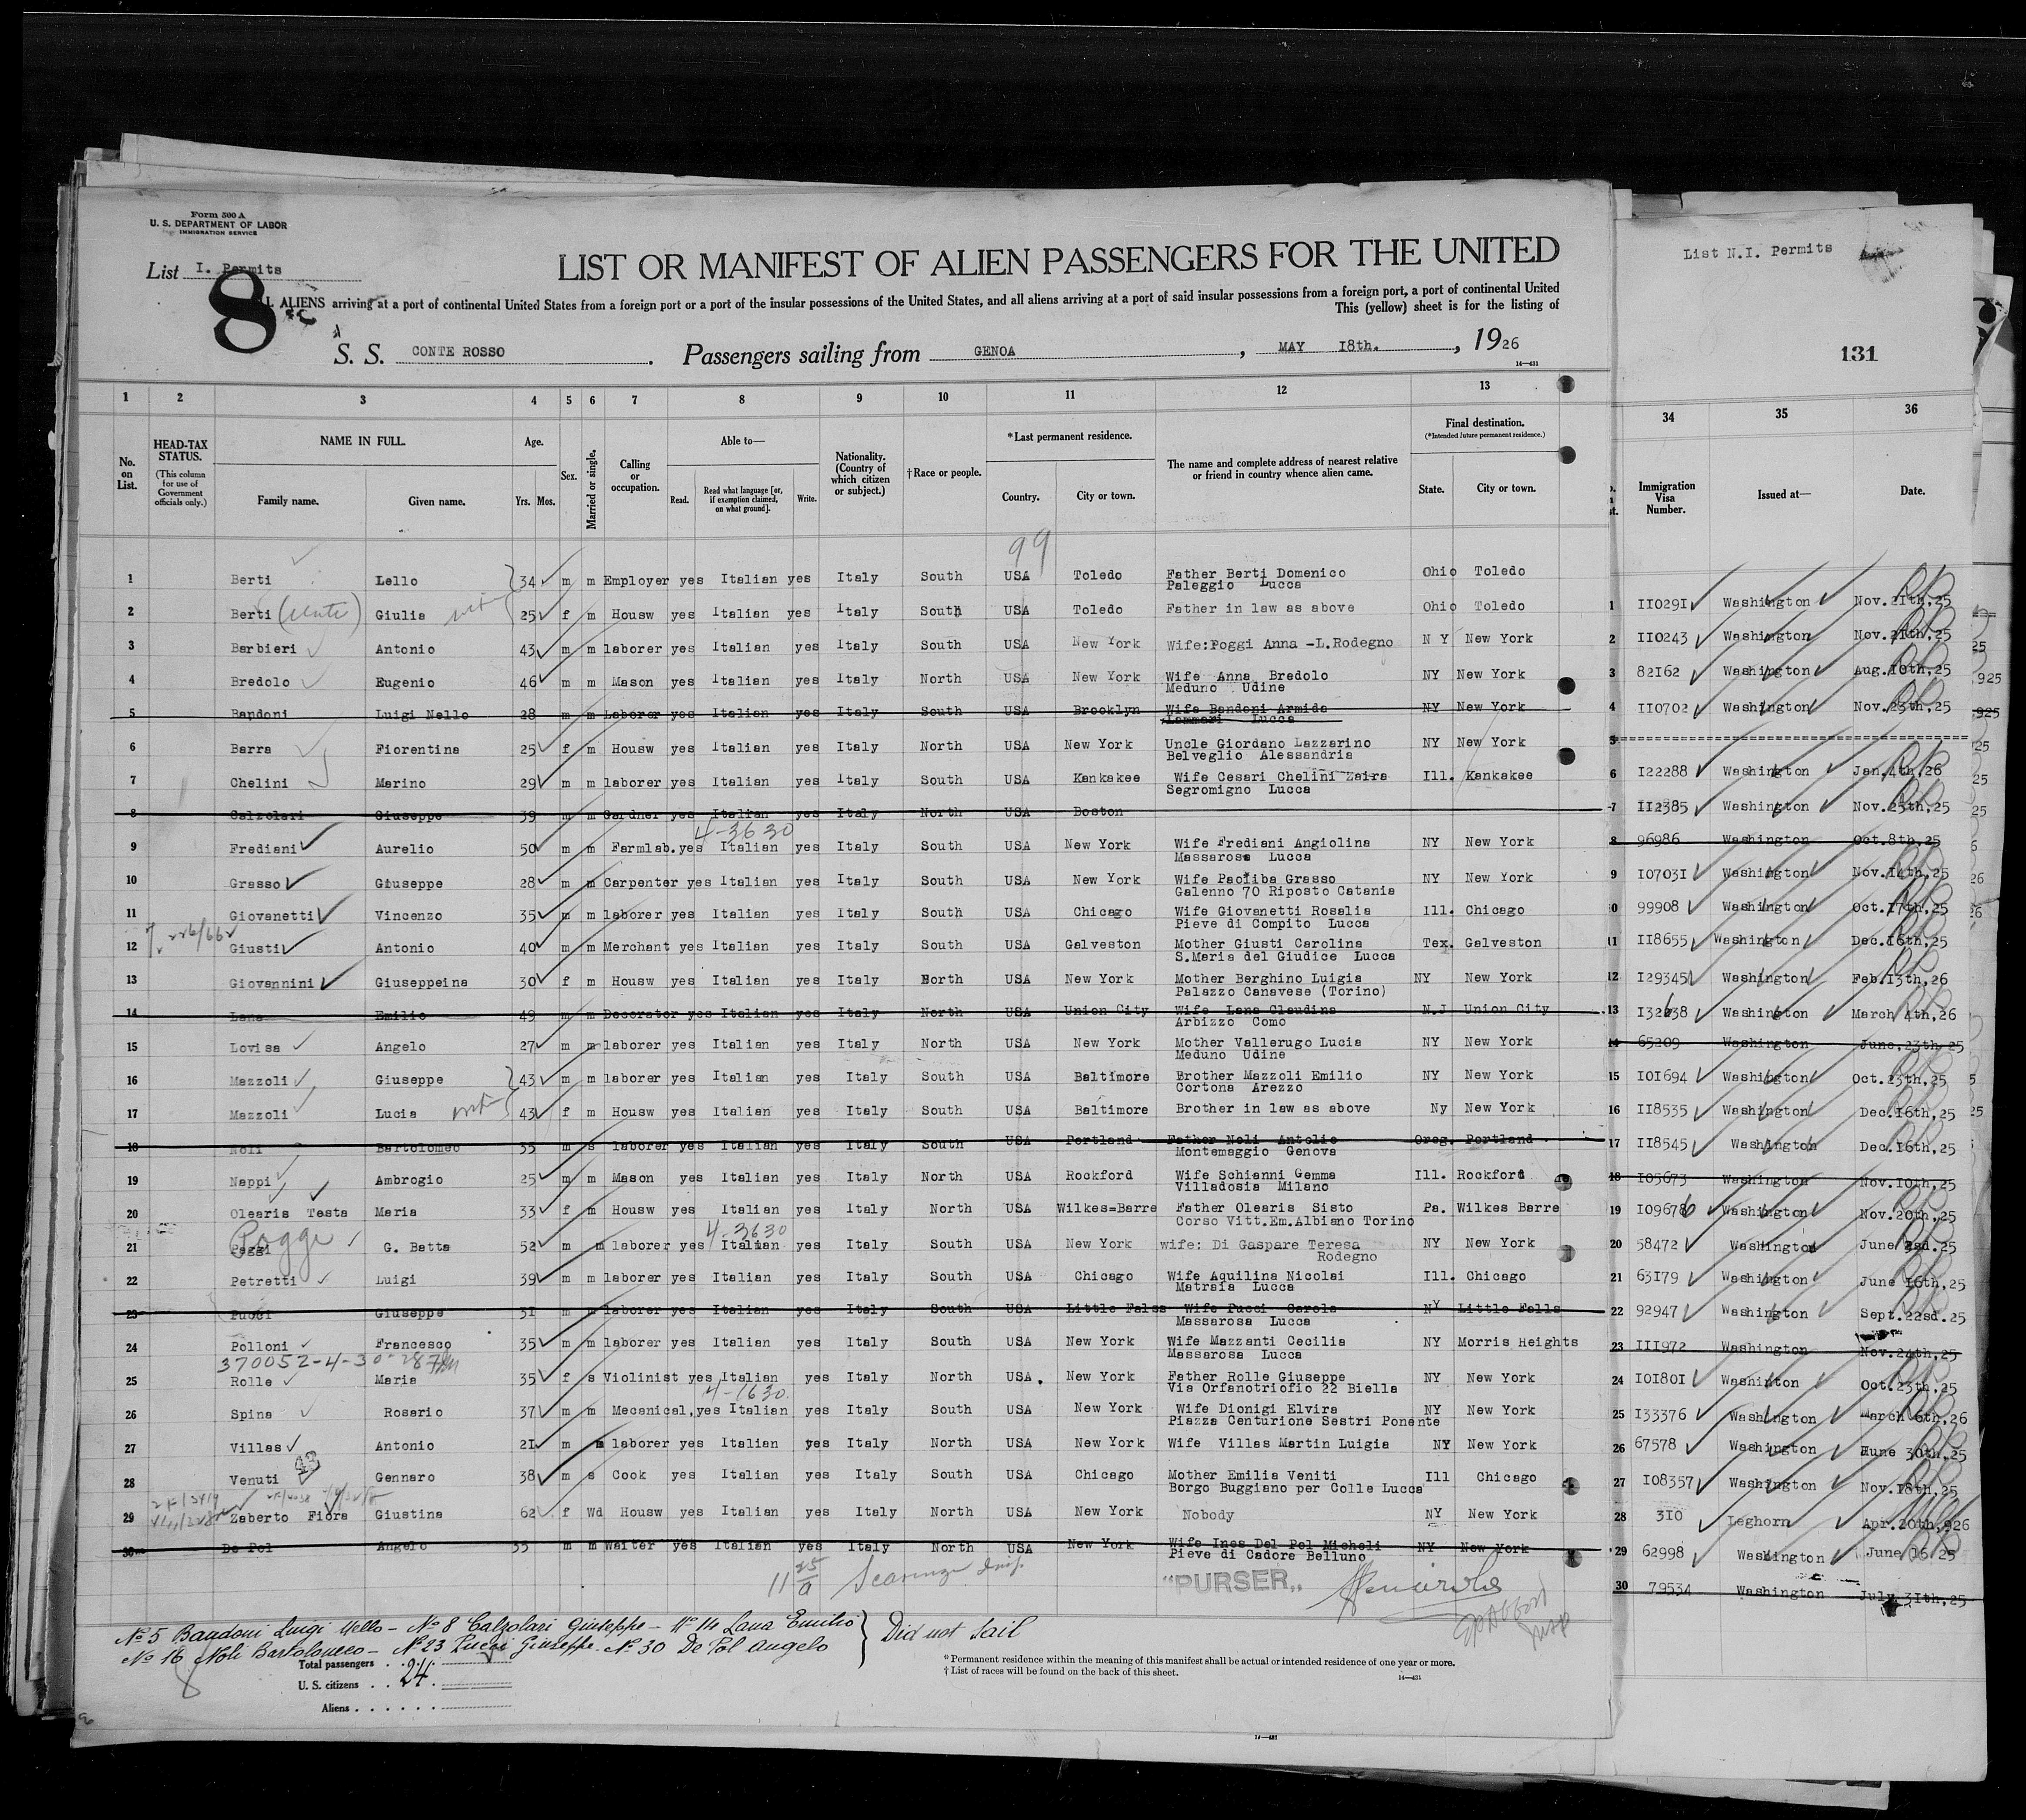 Form 500 A
U. S. DEPARTMENT OF LABOR
IMMIGRATION SERVICE
List I. Permits
8
LIST OR MANIFEST OF ALIEN PASSENGERS FOR THE UNITED
ALIENS arriving at a port of continental United States from a foreign port or a port of the insular possessions of the United States, and all aliens arriving at a port of said insular possessions from a foreign port, a port of continental United
This (yellow) sheet is for the listing of
S. S. CONTE ROSSO. Passengers sailing from GENOA, MAY I8th., 1926
14—431
List N.I. Permits
131
1 2 3 4 5 6 7 8 9 10 11 12 13
34 35 36
No. on List.
HEAD-TAX STATUS.
(This column for use of Government officials only.)
NAME IN FULL.
Family name. Given name.
Age.
Yrs. Mos.
Sex.
Married or single.
Calling or occupation.
Able to—
Read. Read what language [or, if exemption claimed, on what ground]. Write.
Nationality. (Country of which citizen or subject.)
†Race or people.
*Last permanent residence.
Country. City or town.
The name and complete address of nearest relative or friend in country whence alien came.
Final destination.
(*Intended future permanent residence.)
State. City or town.
Immigration Visa Number. Issued at— Date.
99
1 Berti Lello 34 m m Employer yes Italian yes Italy South USA Toledo Father Berti Domenico Ohio Toledo
Paleggio Lucca
2 Berti Giulia 25 f m Housw yes Italian yes Italy South USA Toledo Father in law as above Ohio Toledo
3 Barbieri Antonio 43 m m laborer yes Italian yes Italy South USA New York Wife:Poggi Anna -L.Rodegno N Y New York
4 Bredolo Eugenio 46 m m Mason yes Italian yes Italy North USA New York Wife Anna Bredolo NY New York
Meduno Udine
5 Bandoni Luigi Nello 28 m m Laborer yes Italian yes Italy South USA Brooklyn Wife Bandoni Armida NY New York
Lammari Lucca
6 Barra Fiorentina 25 f m Housw yes Italian yes Italy North USA New York Uncle Giordano Lazzarino NY New York
Belveglio Alessandria
7 Chelini Marino 29 m m laborer yes Italian yes Italy South USA Kankakee Wife Cesari Chelini Zaira Ill. Kankakee
Segromigno Lucca
8 Calzolari Giuseppe 39 m m Gardner yes Italian yes Italy North USA Boston
4-3630
9 Frediani Aurelio 50 m m Farmlab. yes Italian yes Italy South USA New York Wife Frediani Angiolina NY New York
Massarosa Lucca
10 Grasso Giuseppe 28 m m Carpenter yes Italian yes Italy South USA New York Wife Paoliba Grasso NY New York
Galenno 70 Riposto Catania
11 Giovanetti Vincenzo 35 m m laborer yes Italian yes Italy South USA Chicago Wife Giovanetti Rosalia Ill. Chicago
Pieve di Compito Lucca
12 Giusti Antonio 40 m m Merchant yes Italian yes Italy South USA Galveston Mother Giusti Carolina Tex. Galveston
S.Maria del Giudice Lucca
13 Giovannini Giuseppeina 30 f m Housw yes Italian yes Italy North USA New York Mother Berghino Luigia NY New York
Palazzo Canavese (Torino)
14 Lana Emilio 49 m m Decorator yes Italian yes Italy North USA Union City Wife Lana Claudina N.J Union City
Arbizzo Como
15 Lovisa Angelo 27 m m laborer yes Italian yes Italy North USA New York Mother Vallerugo Lucia NY New York
Meduno Udine
16 Mazzoli Giuseppe 43 m m laborer yes Italian yes Italy South USA Baltimore Brother Mazzoli Emilio NY New York
Cortona Arezzo
17 Mazzoli Lucia 43 f m Housw yes Italian yes Italy South USA Baltimore Brother in law as above Ny New York
18 Noli Bartolomeo 35 m s laborer yes Italian yes Italy South USA Portland Father Noli Antolio Oreg. Portland
Montemaggio Genova
19 Nappi Ambrogio 25 m m Mason yes Italian yes Italy North USA Rockford Wife Schianni Gemma Ill. Rockford
Villadosia Milano
20 Olearis Testa Maria 33 f m Housw yes Italian yes Italy North USA Wilkes=Barre Father Olearis Sisto Pa. Wilkes Barre
Corso Vitt.Em.Albiano Torino
Poggi 4-3630
21 Poggi G. Batta 52 m m laborer yes Italian yes Italy South USA New York wife: Di Gaspare Teresa NY New York
Rodegno
22 Petretti Luigi 39 m m laborer yes Italian yes Italy South USA Chicago Wife Aquilina Nicolai Ill. Chicago
Matraia Lucca
23 Pucci Giuseppe 51 m m laborer yes Italian yes Italy South USA Little Falss Wife Pucci Carola NY Little Falls
Massarosa Lucca
24 Polloni Francesco 35 m m laborer yes Italian yes Italy South USA New York Wife Mazzanti Cecilia NY Morris Heights
Massarosa Lucca
370052-4-30-28
25 Rolle Maria 35 f s Violinist yes Italian yes Italy North USA. New York Father Rolle Giuseppe NY New York
Via Orfanotriofio 22 Biella
4-1630
26 Spina Rosario 37 m m Mecanical, yes Italian yes Italy South USA New York Wife Dionigi Elvira NY New York
Piazza Centurione Sestri Ponente
27 Villas Antonio 2I m m laborer yes Italian yes Italy North USA New York Wife Villas Martin Luigia NY New York
28 Venuti Gennaro 38 m s Cook yes Italian yes Italy South USA Chicago Mother Emilia Veniti Ill Chicago
Borgo Buggiano per Colle Lucca
29 Zaberto Fiora Giustina 62 f Wd Housw yes Italian yes Italy North USA New York Nobody NY New York
30 De Pol Angelo 35 m m waiter yes Italian yes Italy North USA New York Wife Ines Del Pol Micheli NY New York
Pieve di Cadore Belluno
"PURSER"
No 5 Bandoni Luigi Nello - No 8 Calzolari Giuseppe - No 14 Lana Emilio
No 16 Noli Bartolomeo - No 23 Pucci Giuseppe. No 30 De Pol Angelo
Did not sail
Total passengers
24
U. S. citizens
Aliens
*Permanent residence within the meaning of this manifest shall be actual or intended residence of one year or more.
†List of races will be found on the back of this sheet.
14—431
1 II029I Washington Nov.2Ith,25
2 II0243 Washington Nov.2Ith,25
3 82I62 Washington Aug.I0th,25
4 II0702 Washington Nov.23th,25
5
6 I22288 Washington Jan.4th,26
7 II2385 Washington Nov.25th,25
8 96986 Washington Oct.8th,25
9 I0703I Washington Nov.I4th,25
0 99908 Washington Oct.I7th,25
11 II8655 Washington Dec.I6th,25
12 I29345 Washington Feb.I3th,26
13 I32638 Washington March 4th,26
14 65209 Washington June,23th,25
15 I0I694 Washington Oct.23th,25
16 II8535 Washington Dec.I6th,25
17 II8545 Washington Dec.I6th,25
18 I05673 Washington Nov.I0th,25
19 I09676 Washington Nov.20th,25
20 58472 Washington June 2sd.25
21 63I79 Washington June I6th,25
22 92947 Washington Sept.22sd.25
23 III972 Washington Nov.24th,25
24 I0I80I Washinton Oct.23th,25
25 I33376 Washington March 6th,26
26 67578 Washington June 30th,25
27 I08357 Washington Nov.I8th,25
28 3I0 Leghorn Apr.20th,926
29 62998 Washington June I6 25
30 79534 Washington July 3Ith,25